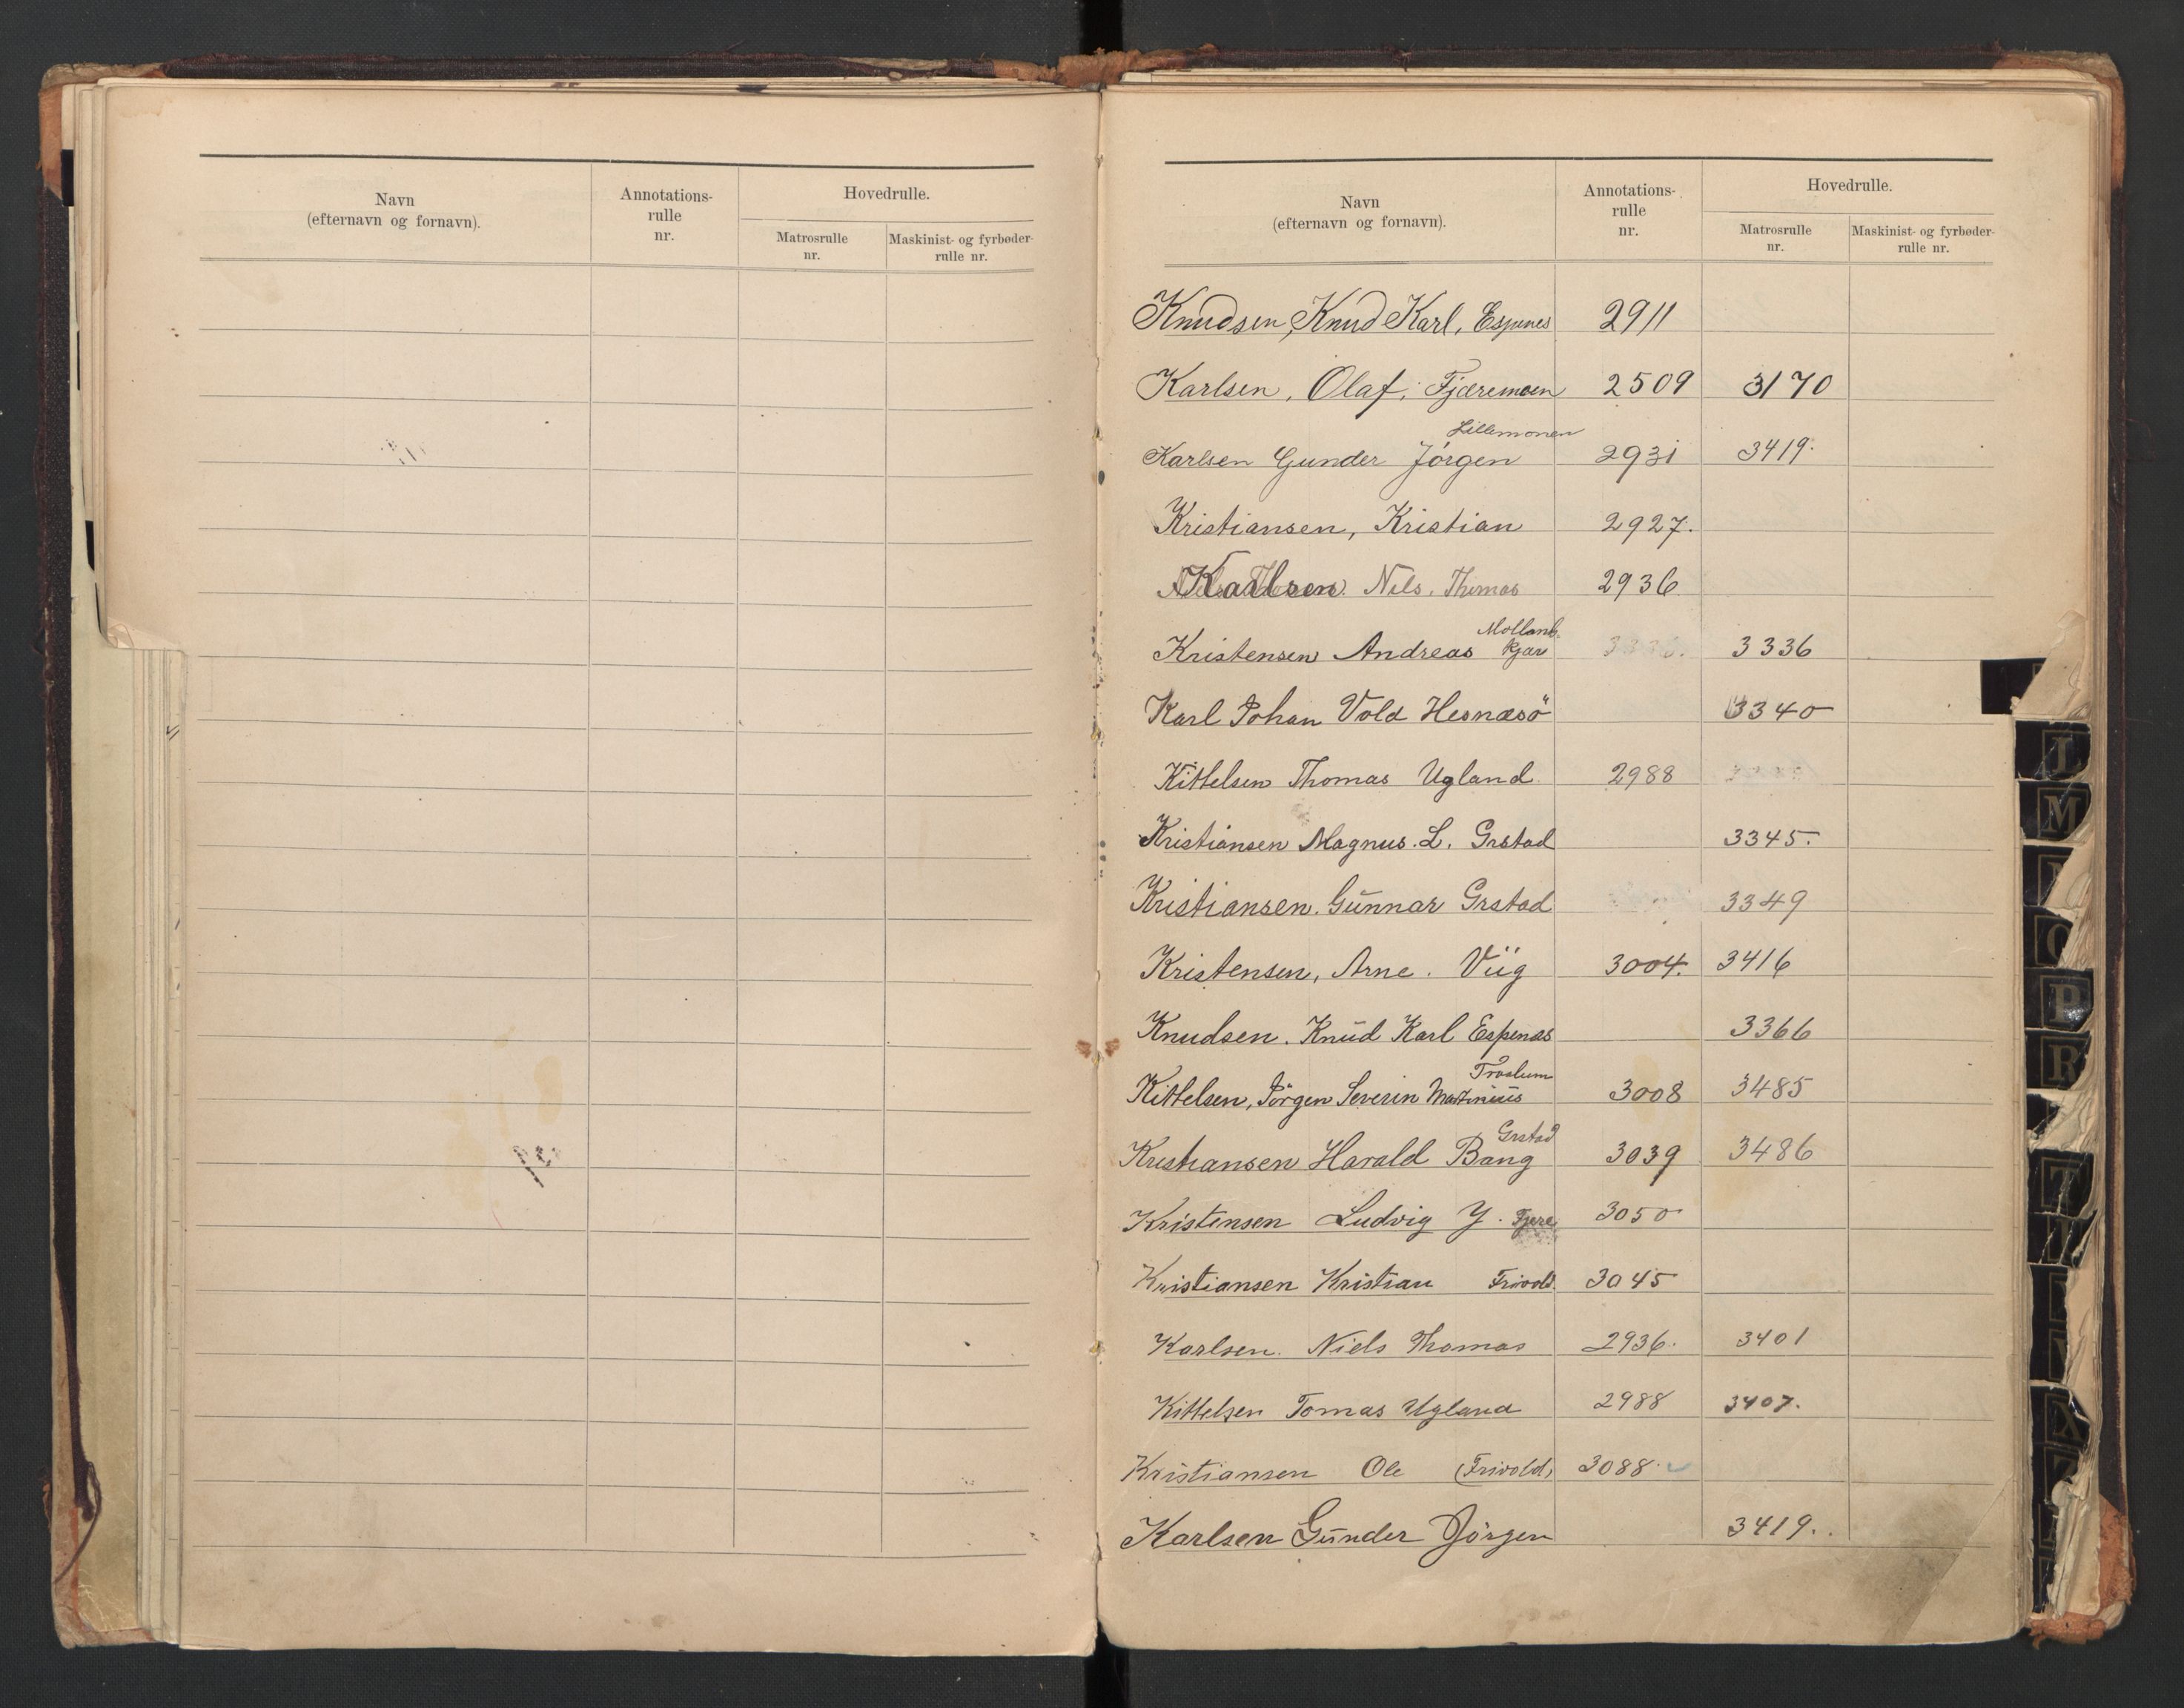 Navn
(efternavn og fornavn).
Annotations-
rulle
nr.
Hovedrulle.
Matrosrulle
nr.
Maskinist- og fyrbøder-
rulle nr.
Navn
(efternavn og fornavn).
Annotations-
rulle
nr.
Hovedrulle.
Matrosrulle
nr.
Maskinist- og fyrbøder-
rulle nr.
Knudsen, Knud Karl, Espenes 2911
Karlsen, Olaf, Fjæremoen 2509 3170
Lillemonen
Karlsen Gunder Jörgen 2931 3419.
Kristiansen, Kristian 2927.
Karlsen Nils. Thomas 2936
Molland
Kristensen Andreas Fjær 3336
Karl Johan Vold Hesnæsö 3340
Kittelsen Thomas Ugland 2988
Kristiansen Magnus. L. Grstad 3345.
Kristiansen. Gunnar Grstad 3349
Kristensen, Arne. Viig 3004. 3416
Knudsen. Knud Karl Espenæs 3366
Kittelsen, Jörgen Severin Martinius 3008 3485
Grstad
Kristiansen Harald Bang 3039 3486
Kristensen Ludvig Y. Fjere 3050
Kristiansen Kristian Frivold. 3045
Karlsen. Niels Thomas 2936. 3401
Kittelsen Tomas Ugland 2988 3407.
Kristiansen Ole (Frivold) 3088.
Karlsen Gunder Jörgen 3419.
I
M
P
R
T
X